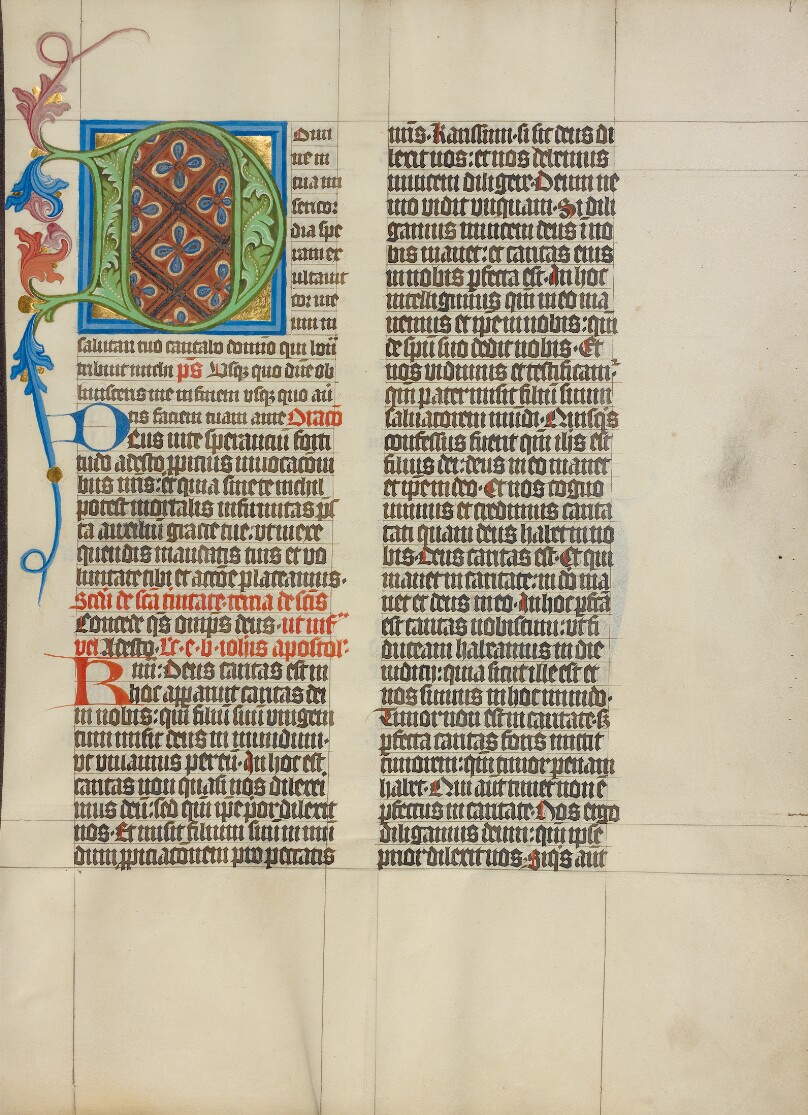 D omi
ne in
tua mi
sericor
dia spe
raui ex
ultauit
cor me
um in
salutari tuo cantabo domino qui bōa
tribuit michi ps̄ Usqꝫ quo dn̄e ob
liuisceris me in finem vsqꝫ quo au͞
tis faciem tuam a me Oracō
Deus in te sperancium forti
tudo adesto ꝓpicius inuocacioni
bus nr̄is: et quia sine te nichil
potest mortalis infirmitas p̄s
ta auxiliū gracie tue: vt in exe
quendis mandatis tuis et vo
luntate tibi et accōe placeamus.
Scd̄a de sc̄a tinitate tercia de sc̄is
Concede qs om̄ps deus. ut inf̄
vel Adesto. Lc̄. e. b. ioh̄is apostol̄.
Kmi: Deus caritas est in
hoc apparuit caritas dei
in nobis: qm̄ filiū suū vnigeni
tum misit deus in mundum.
vt viuamus per eū. In hoc est
caritas non quasi nos dilexeri
mus deū: sed qm̄ ip̄e prior dilexit
nos. Et misit filium suū in mū
dum ꝓpiciacōnem pro peccatis
nr̄is. Karissimi. si sic deus di
lexit nos: et nos debemus
inuicem diligere. Deum ne
mo vidit vnquam. Si dili
gamus inuicem deus ī no
bis manet: et caritas eius
in nobis ꝑfecta est. In hoc
intelligimus qm̄ in eo ma
nemus et ip̄e in nobis: qm̄
de sp̄u suo dedit nobis. Et
nos vidimus et testificam᷒
qm̄ pater misit filiū suum
saluatorem mūdi. Quisqs
confessus fuerit qm̄ ih̄s est
filius dei: deus in eo manet
et ip̄e in deo. Et nos cogno
uimus et credimus carita
tati quam deus habet in no
bis. Deus caritas est. Et qui
manet in caritate: in dō ma
net et deus in eo. In hoc ꝑfc̄a
est caritas nobiscum: vt fi
duciam habeamus in die
iudicij: quia sicut ille est et
nos sumus in hoc mundo.
Timor non est in caritate. sꝫ
ꝑfecta caritas foris mittit
timorem: qm̄ timor penam
habet. Qui aūt timet non ē
ꝑfectus in caritate. Nos ergo
diligamus deum: qm̄ ipse
prior dilexit nos. Siq̄s aūt